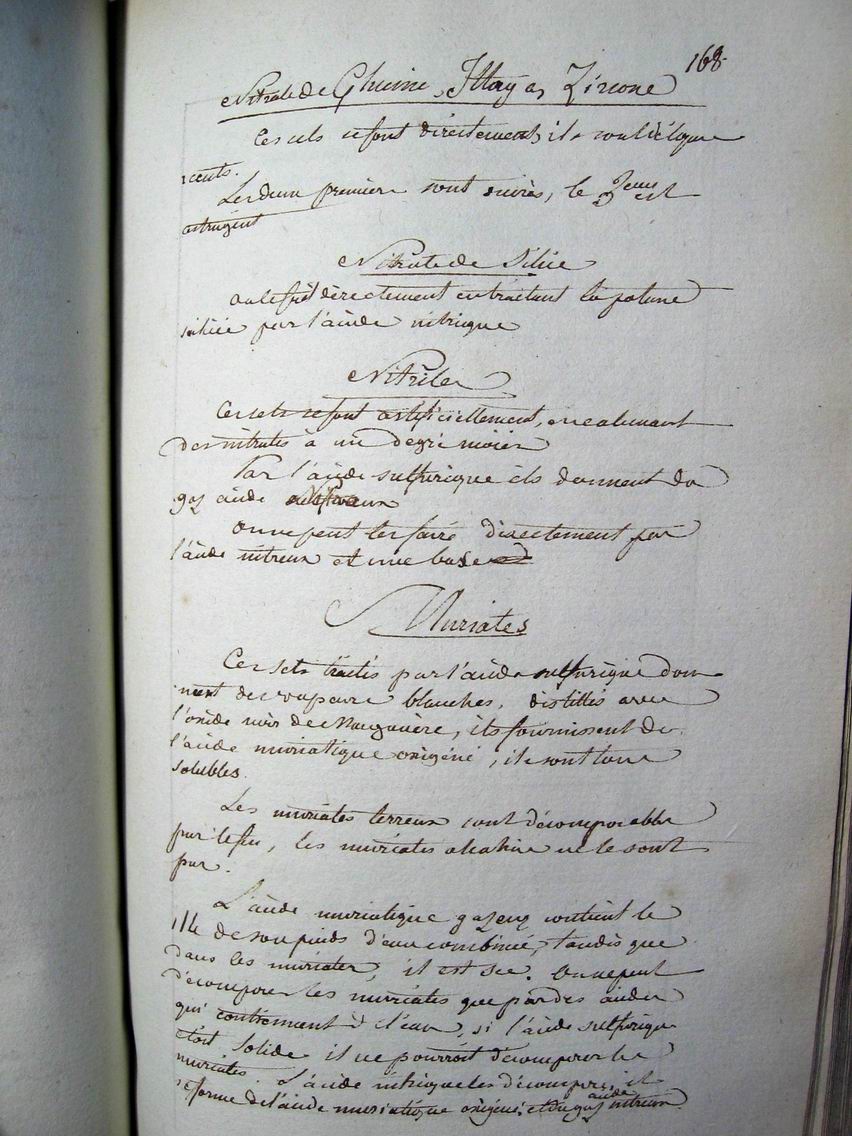 168
Nitrate de Glucine, Ittrya, Zircone
Ces sels se font directement, ils sont déliques
cents.
Les deux premiers sont sucrés, le 3eme est
astringent
Nitrate de Silice
on le fait directement en traitant la potasse
silicée par l'acide nitrique
Nitrites
Ces sels se font artificiellement, en calcinant
des nitrates à un degré moien
Par l'acide sulfurique ils donnent du
gaz acide
on ne peut les faire directement par
l'acide nitreux et une base
Muriates
Ces sels traités par l'acide sulfurique don
nent des vapeurs blanches, distillés avec
l'oxide noir de Manganèse, ils fournissent de
l'acide muriatique oxigéné, ils sont tous
solubles.
Les muriates terreux sont décomposables
par le feu, les muriates alcalins ne le sont
pas.
L'acide muriatique gazeux contient le
1/4 de son poids d'eau combinée, tandis que
dans les muriates, il est sec. On ne peut
décomposer les muriates que par des acides
qui contiennent de l'eau, si l'acide sulfurique
etoit solide il ne pourroit décomposer les
muriates. L'acide nitrique les décompose, il
se forme de l'acide muriatique oxigéné, et du gaz acide nitreux